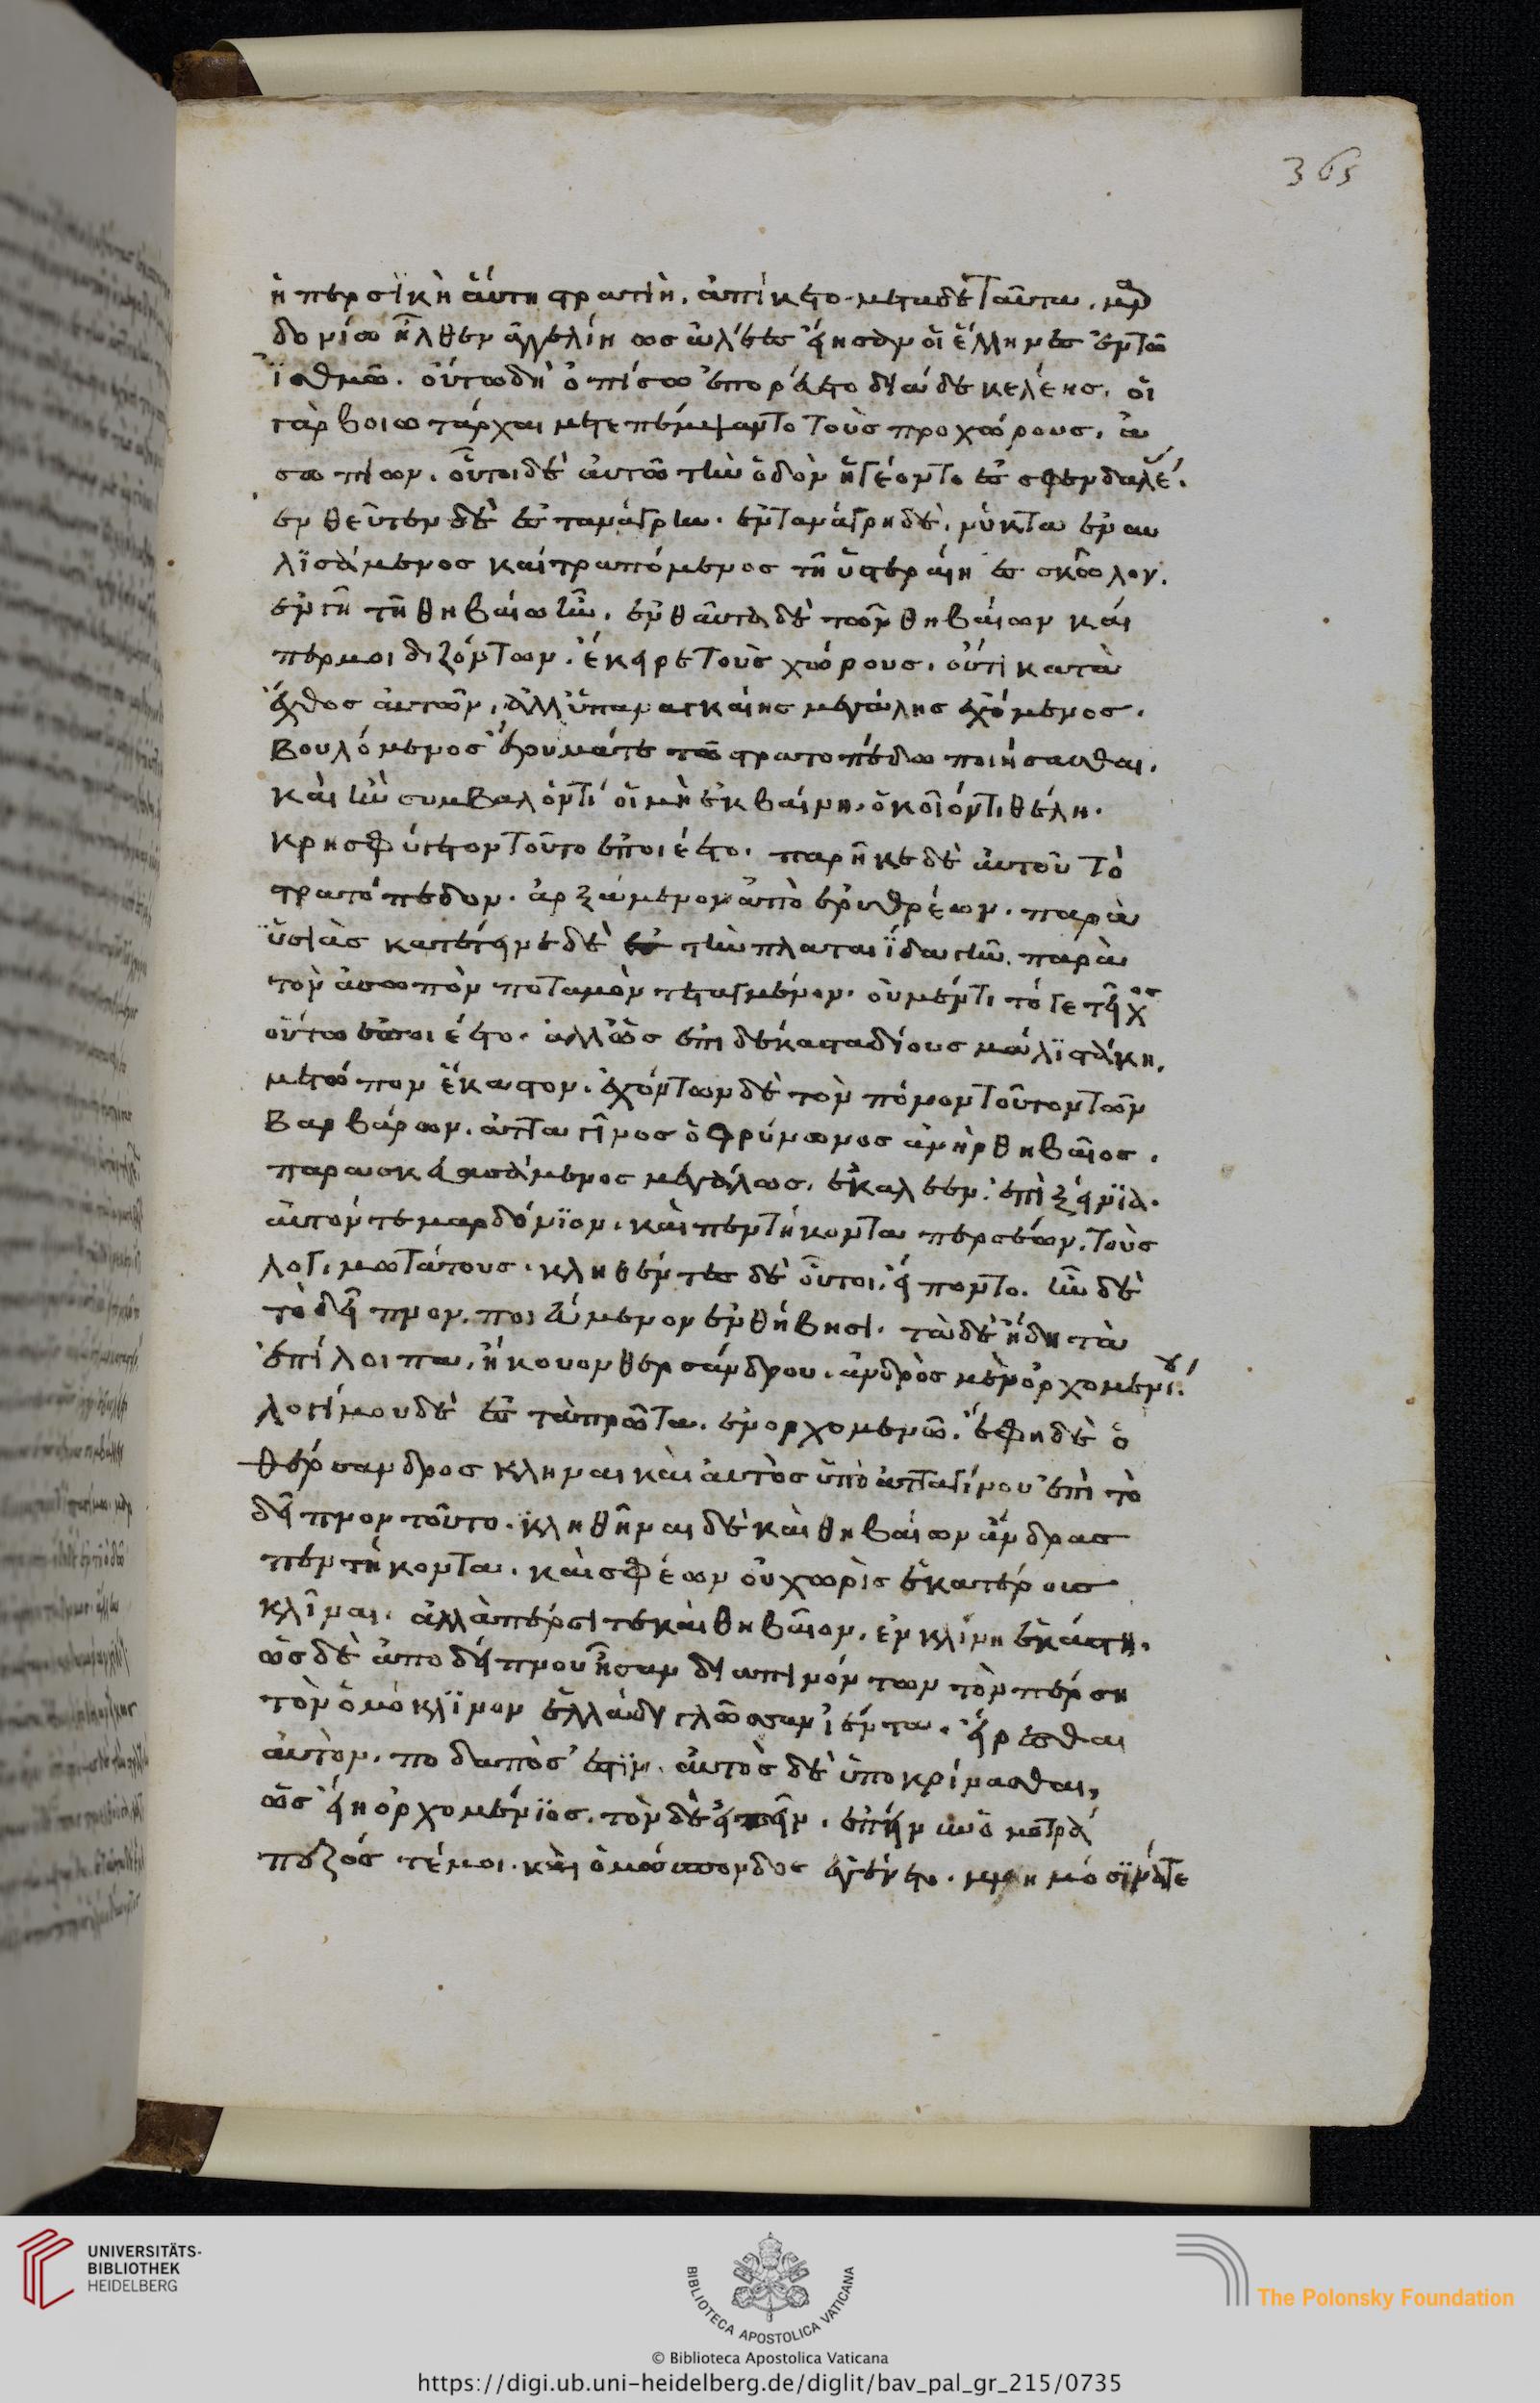 365
ἡ περσϊκὴ ἅυτη στρατιὴ. ἀπίκετο. μετὰ δὲ ταῦτα. μαρ
δονίω ἦλθεν ἀγγελίη ὡς ἁλέες ἔιησαν οἱ ἕλληνες ἐν τῶ
ϊσθμῶ. οὕτω δὴ ὀπίσω ἐπορέυετο διὰ δεκελέης. οἱ
γὰρ βοιωτάρχαι μετεπέμψαντο τοὺς προχώρους. ἀ
σωπίων. οὗτοι δὲ αὐτῶ τὴν ὁδὸν ἡγέοντο ἐς σφενδαλέ.
ἐνθεῦτεν δὲ ἐς ταμάγρην. ἐν ταμάγρη δὲ. νύκτα ἐναυ
λϊσάμενος καὶ τραπόμενος τῆ ὑστεράιη ἐς σκῶλον.
ἐν γῆ τῆ θηβαίω ἦν. ἐνθαῦτα δὲ τῶν θηβαίων κάι
περ μηδιζόντων. ἔκειρε τοὺς χώρους. οὔτι κατὰ
ἔχθος αὐτῶν. ἀλλ' ὑπ' ἀναγκάιης μεγάλης ἐχόμενος.
βουλόμενος ἔρυμά τε τῶ στρατοπέδω ποιήσασθαι.
καὶ ἢν συμβαλόντι οἱ μὴ ἐκβαίνη. ὁκοῖόν τι θέλη.
κρησφύγετον τοῦτο ἐποιέετο. παρῆκε δὲ αὐτοῦ τὸ
στρατόπεδον. ἀρξάμενον ἀπὸ ἐρυθρέων. παρὰ
ϋσιὰς κατέτεινε δὲ ἐς τὴν πλαταιΐδα γῆν. παρὰ
τὸν ἀσωπὸν ποταμὸν τεταγμένον. οὐ μέντι τό γε τεῖχος
οὕτω ἐποιέετο. ἀλλ' ὡς ἐπὶ δέκα σταδίους μάλϊστά κη.
μέτωπον ἕκαστον. ἐχόντων δὲ τὸν πόνον τοῦτον τῶν
βαρβάρων. ἀτταγῖνος ὁ φρύνωνος ἀνὴρ θηβαῖος.
παρασκευασάμενος μεγάλως. ἐκάλεεν. ἐπὶ ξείνϊα.
αὐτόν τε μαρδόνϊον. καὶ πεντήκοντα περσέων. τοὺς
λογιμωτάτους. κληθέντες δὲ οὗτοι. ἕιποντο. ἦν δὲ
τὸ δεῖπνον. ποιεύμενον ἐν θήβησι. τὰ δὲ ἤδη τὰ
ἐπίλοιπα. ἤκουον θερσάνδρου. ἀνδρὸς μὲν ὀρχομενίου.
λογίμου δὲ ἐς τὰ πρῶτα. ἐν ὀρχομενῶ. ἔφη δὲ ὁ
θέρσανδρος κληναι καὶ αὐτὸς ὑπὸ ἀτταγίνου ἐπὶ τὸ
δεῖπνον τοῦτο. κληθῆναι δὲ καὶ θηβαίων ἄνδρας
πεντήκοντα. καὶ σφέων οὐ χωρὶς ἑκατέρους
κλῖναι. ἀλλὰ πέρσϊ τε καὶ θηβαῖον. ἐν κλίνη ἑκάστη.
ὡς δὲ ἀπὸ δείπνου ἦσαν διαπινόντων τὸν πέρση
τὸν ὁμόκλϊνον ἑλλάδα γλῶσσαν ἱέντα. ἔιρεσθαι
αὐτὸν. ποδαπός ἐστιν. αὐτὸς δὲ ὑποκρίνασθαι,
ὡς ἔιη ὀρχομένϊος. τὸν δὲ εἰπεῖν. ἐπεὶ νῦν ὁμοτρά
πεζός τέ μοι. καὶ ὁμόσπονδος ἐγένεο. μνημόσϋνά τε
UNIVERSITÄTS-
BIBLIOTHEK
HEIDELBERG
BIBLIOTECA APOSTOLICA VATICANA
The Polonsky Foundation
© Biblioteca Apostolica Vaticana
https://digi.ub.uni-heidelberg.de/diglit/bav_pal_gr_215/0735